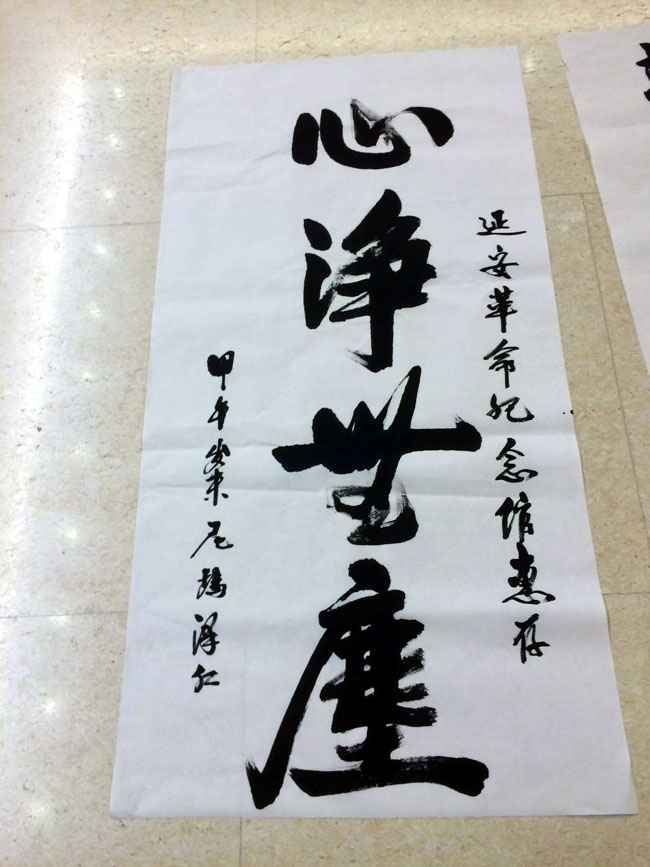 延安革命纪念馆惠存
心净無塵
甲午岁末尼玛泽仁